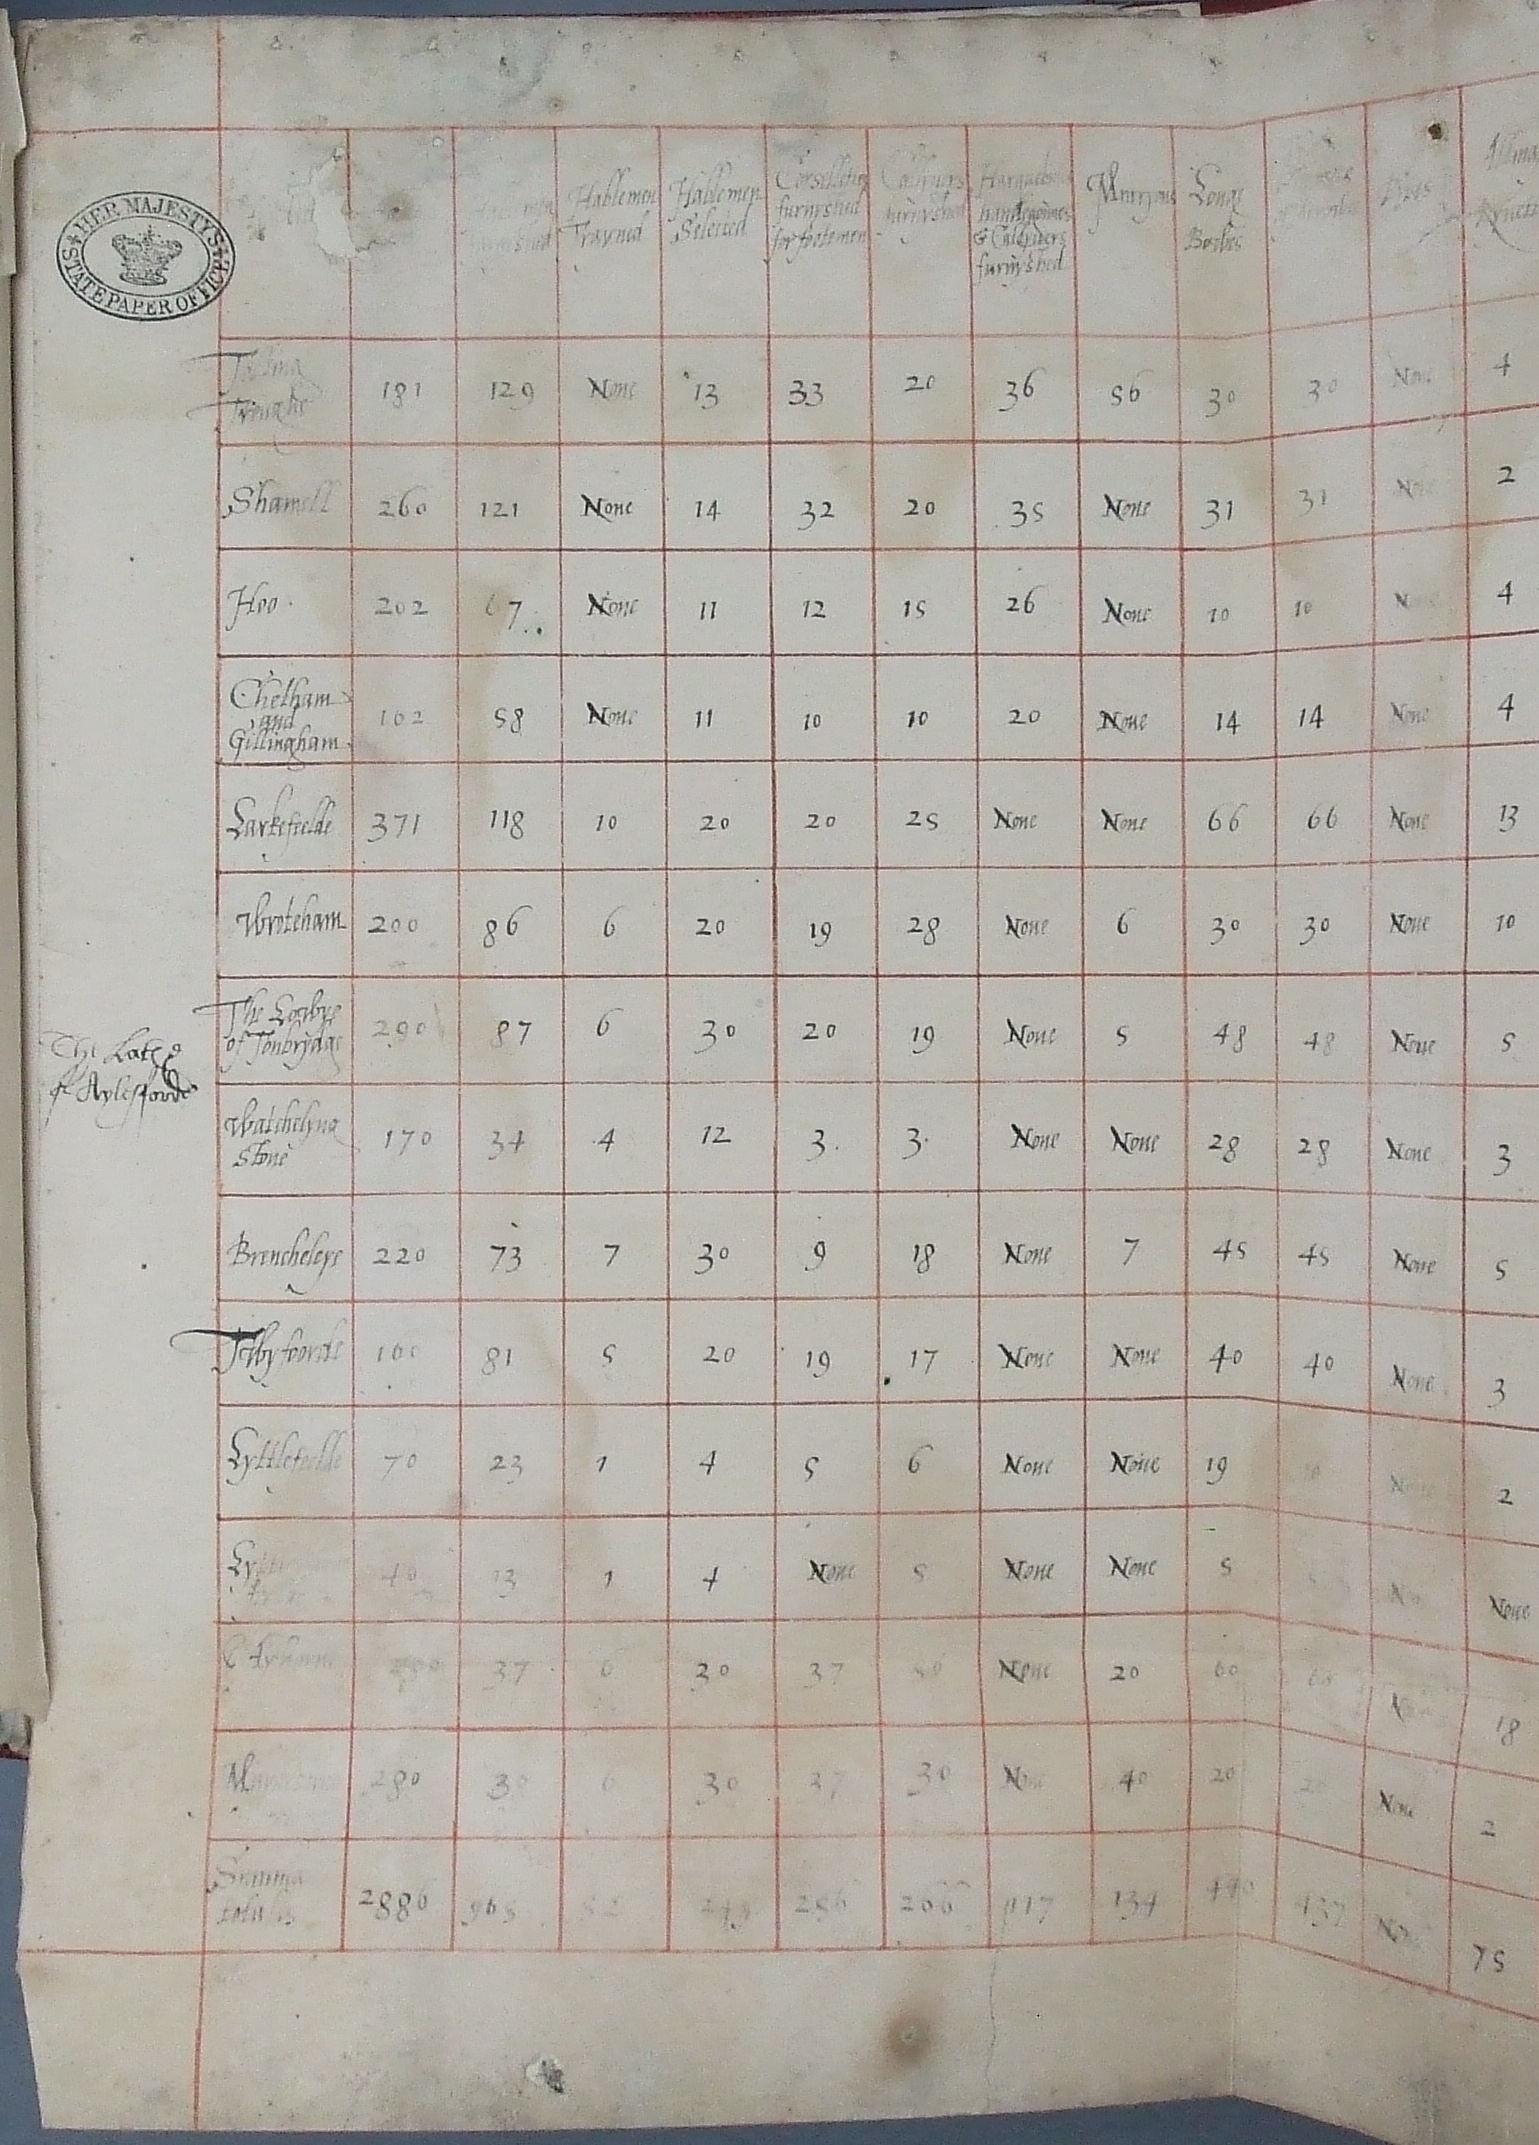 HER MAJESTYS STATE PAPER OFFICE
Hablemen Trayned
Hablemen Selected
Corsellettes furnyshed for footemen
Calyvers furnyshed
handegonnes & Calyvers furnyshed
Murryons
Longe Bowes
The Lathe of Aylesforde
181 129 None 13 33 20 36 56 30 30 None 4
Shamell 260 121 None 14 32 20 35 None 31 31 None 2
Hoo 202 67 None 11 12 15 26 None 10 10 None 4
Chetham and Gillingham 102 58 None 11 10 10 20 None 14 14 None 4
Larkefielde 371 118 10 20 20 25 None None 66 66 None 13
Wroteham 200 86 6 20 19 28 None 6 30 30 None 10
The Lowbye of Tonbrydge 290 87 6 30 20 19 None 5 48 48 None 5
Watchelyng Stone 170 34 4 12 3 3 None None 28 28 None 3
Brencheleye 220 73 7 30 9 18 None 7 45 45 None 5
Twyforde 160 81 5 20 19 17 None None 40 40 None 3
Lyttlefielde 70 23 1 4 5 6 None None 19 None 2
40 13 1 4 None 5 None None 5 None
37 6 30 37 None 20 60 18
280 30 6 30 37 30 None 40 20 20 None 2
Summa totalis 2886 965 52 249 256 266 117 134 440 437 None 75